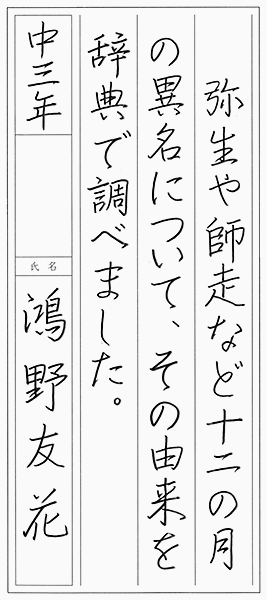 弥生や師走など十二の月
の異名について、その由来を
辞典で調べました。
中三年
氏名
鴻野友花